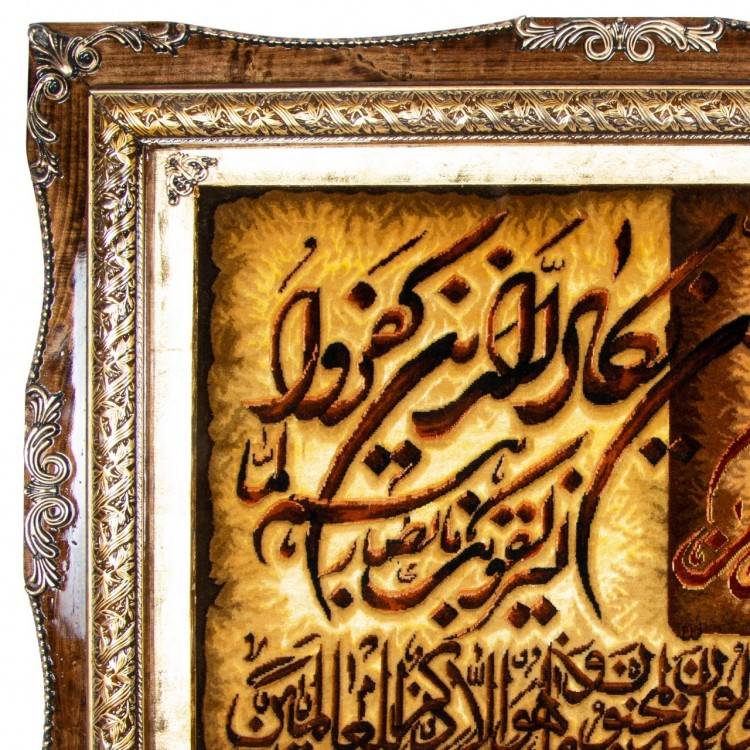 ن يكاد الذين كفروا
ليزلقونك بابصارهم لما
لون
لمجنون وما هو الا ذكر للعالمين